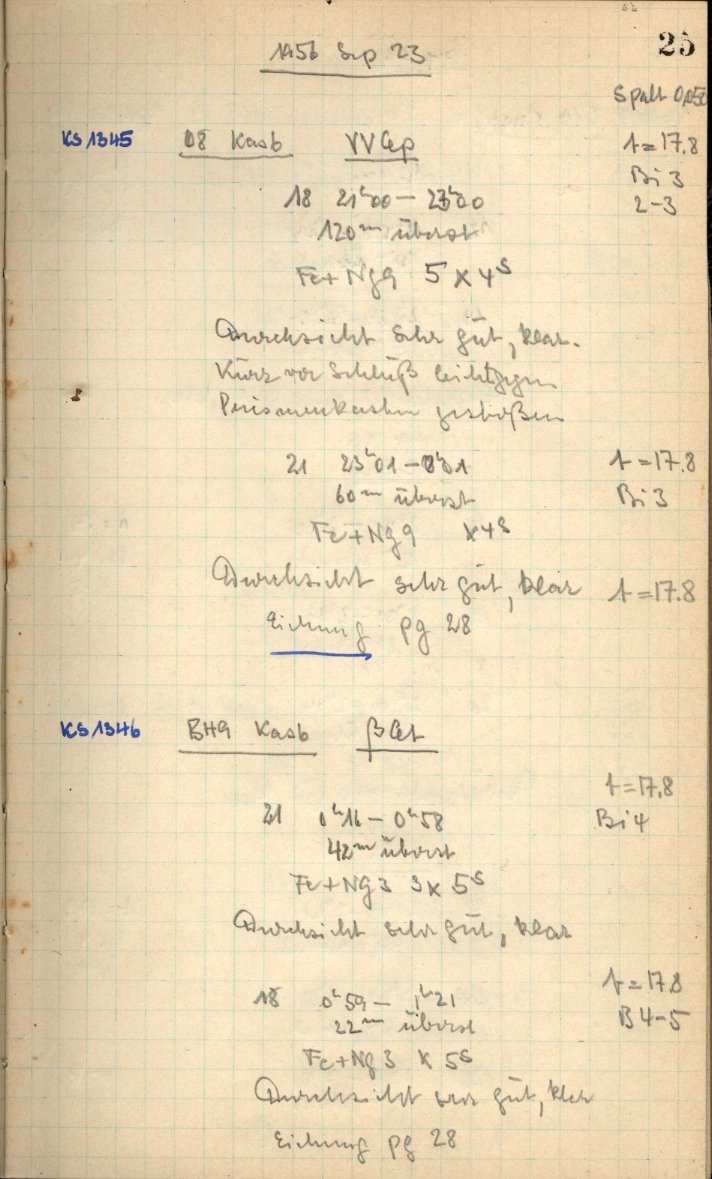 25
1956 Sep 23
Spalt 0,050
KS 1345 08 Kasb VV Cep t=17.8
Bi 3
18 21ʰ00 – 23ʰ00 2-3
120ᵐ überst
Fe+Ng9 5 x 4ˢ
Durchsicht sehr gut, klar.
Kurz vor Schluß leicht gegen
Prismenkasten gestoßen
21 23ʰ01 – 0ʰ01 t=17.8
60ᵐ überst Bi 3
Fe+Ng9 x 4ˢ
Durchsicht sehr gut, klar t=17.8
Eichung pg 28
KS 1346 BH9 Kasb β Cet
t=17,8
21 0ʰ16 – 0ʰ58 Bi 4
42ᵐ überst
Fe+Ng3 3 x 5ˢ
Durchsicht sehr gut, klar
t=17.8
18 0ʰ59 – 1ʰ21 B 4-5
22ᵐ überst
Fe+Ng3 x 5ˢ
Durchsicht sehr gut, klar
Eichung pg 28